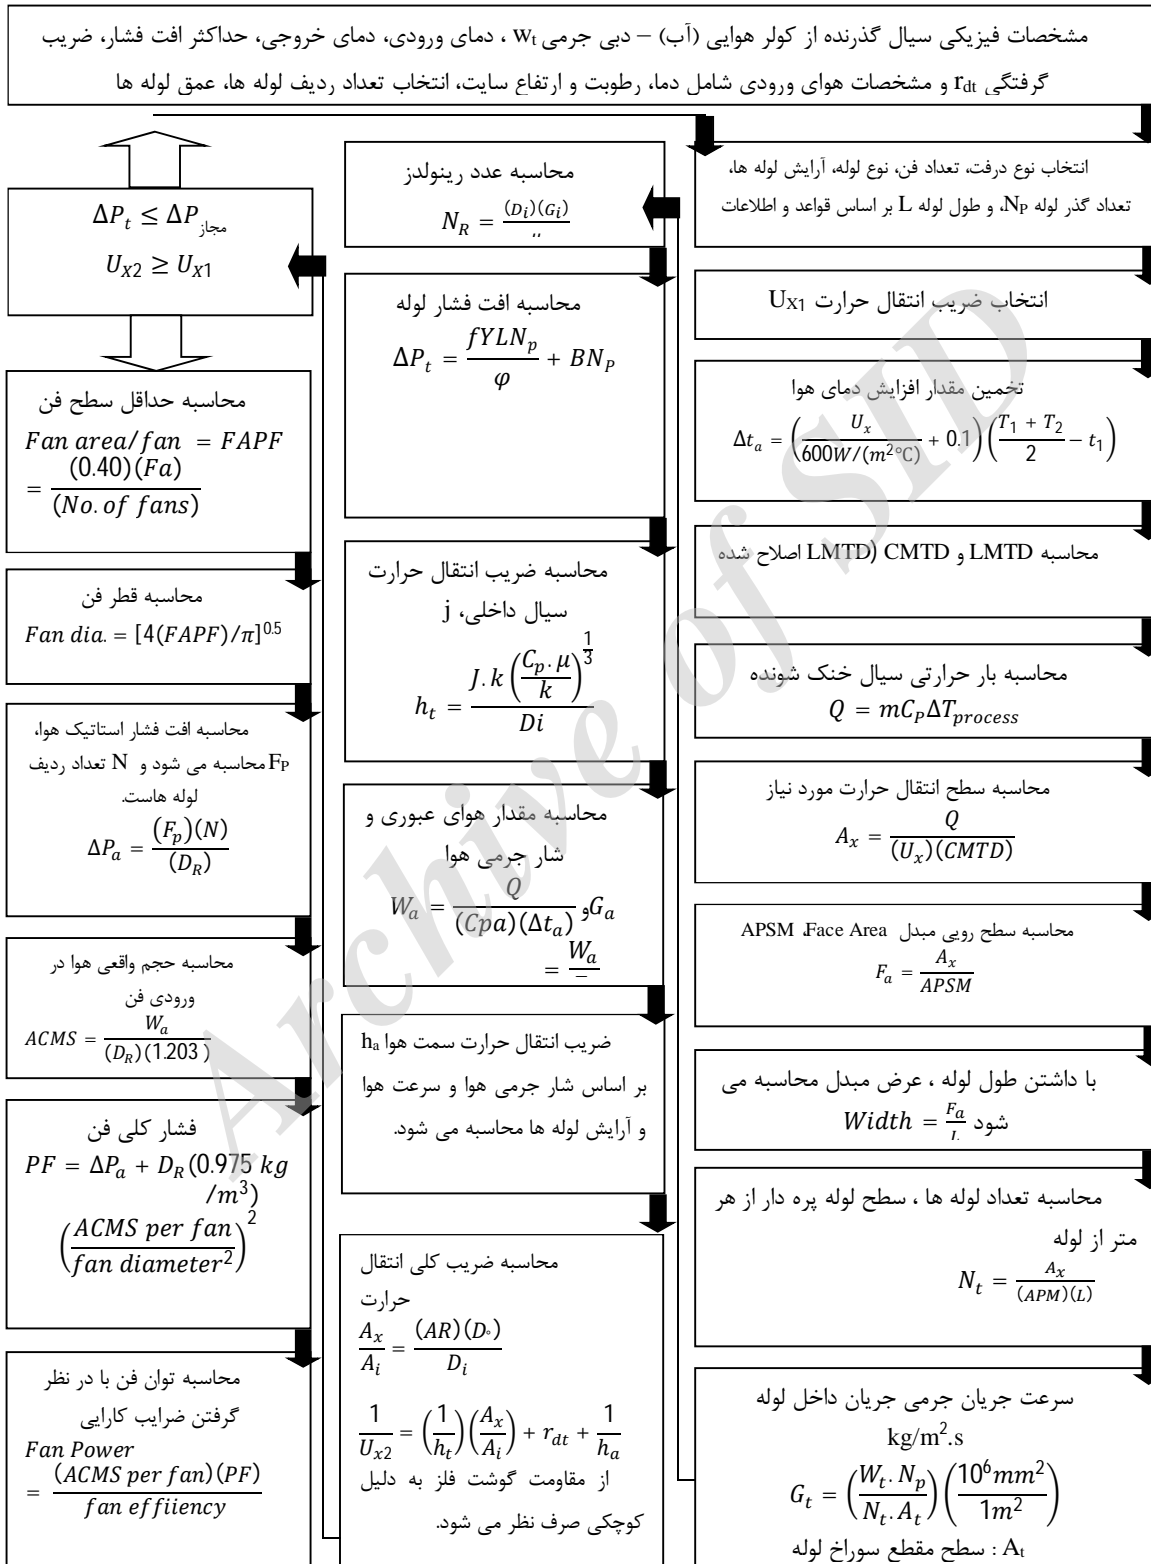 مشخصات فیزیکی سیال گذرنده از کولر هوایی (آب) – دبی جرمی Wt ، دمای ورودی، دمای خروجی، حداکثر افت فشار، ضریب
گرفتگی rdt و مشخصات هوای ورودی شامل دما، رطوبت و ارتفاع سایت، انتخاب تعداد ردیف لوله ها، عمق لوله ها
انتخاب نوع درفت، تعداد فن، نوع لوله، آرایش لوله ها،
تعداد گذر لوله NP، و طول لوله L بر اساس قواعد و اطلاعات
انتخاب ضریب انتقال حرارت UX1
تخمین مقدار افزایش دمای هوا
Δta = (Ux / 600W/(m²°C) + 0.1) ((T1 + T2) / 2 − t1)
محاسبه LMTD و CMTD (LMTD اصلاح شده
محاسبه بار حرارتی سیال خنک شونده
Q = mCPΔTprocess
محاسبه سطح انتقال حرارت مورد نیاز
Ax = Q / (Ux)(CMTD)
محاسبه سطح رویی مبدل Face Area، APSM
Fa = Ax / APSM
با داشتن طول لوله ، عرض مبدل محاسبه می
شود Width = Fa / L
محاسبه تعداد لوله ها ، سطح لوله پره دار از هر
متر از لوله
Nt = Ax / (APM)(L)
سرعت جریان جرمی جریان داخل لوله
kg/m².s
Gt = (Wt. Np / Nt. At) (10⁶mm² / 1m²)
At : سطح مقطع سوراخ لوله
محاسبه عدد رینولدز
NR = (Di)(Gi) / μ
محاسبه افت فشار لوله
ΔPt = fYLNp / φ + BNP
محاسبه ضریب انتقال حرارت
سیال داخلی، j
ht = J. k (Cp. μ / k)^(1/3) / Di
محاسبه مقدار هوای عبوری و
شار جرمی هوا
Wa = Q / (Cpa)(Δta) و Ga
= Wa
ضریب انتقال حرارت سمت هوا ha
بر اساس شار جرمی هوا و سرعت هوا
و آرایش لوله ها محاسبه می شود.
محاسبه ضریب کلی انتقال
حرارت
Ax / Ai = (AR)(D∘) / Di
1 / Ux2 = (1 / ht)(Ax / Ai) + rdt + 1 / ha
از مقاومت گوشت فلز به دلیل
کوچکی صرف نظر می شود.
ΔPt ≤ ΔPمجاز
UX2 ≥ UX1
محاسبه حداقل سطح فن
Fan area/fan = FAPF
= (0.40)(Fa) / (No. of fans)
محاسبه قطر فن
Fan dia. = [4(FAPF)/π]^0.5
محاسبه افت فشار استاتیک هوا،
FP محاسبه می شود و N تعداد ردیف
لوله هاست.
ΔPa = (Fp)(N) / (DR)
محاسبه حجم واقعی هوا در
ورودی فن
ACMS = Wa / (DR)(1.203 )
فشار کلی فن
PF = ΔPa + DR(0.975 kg
/m³)
(ACMS per fan / fan diameter²)²
محاسبه توان فن با در نظر
گرفتن ضرایب کارایی
Fan Power
= (ACMS per fan)(PF) / fan effiiency
Archive of SID